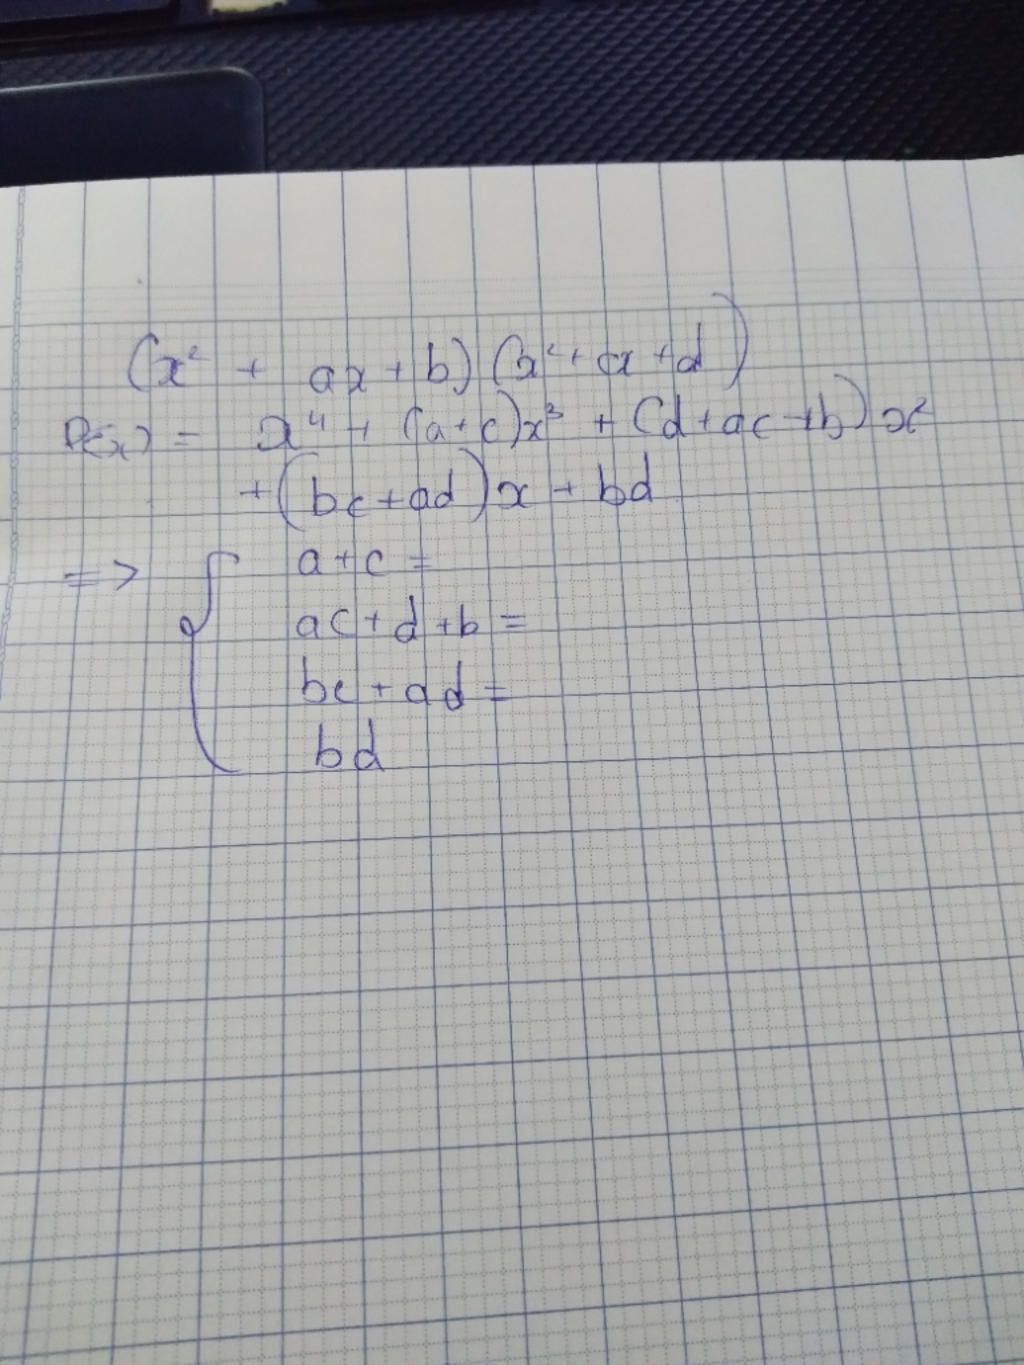 (x² + ax + b) (x² + cx + d)
P(x) = x⁴ + (a+c)x³ + (d+ac+b)x²
+ (bc+ad)x + bd
=> { a+c =
ac+d+b =
bc+ad =
bd